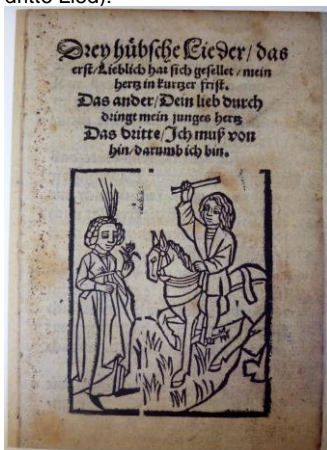 dritte Lied).
Drey hübsche Lieder/ das
erst/ Lieblich hat sich gesellet/ mein
hertz in kurtzer frist.
Das ander/ Dein lieb durch
dringt mein junges hertz
Das dritte/ Ich muß von
hin/ darumb ich bin.